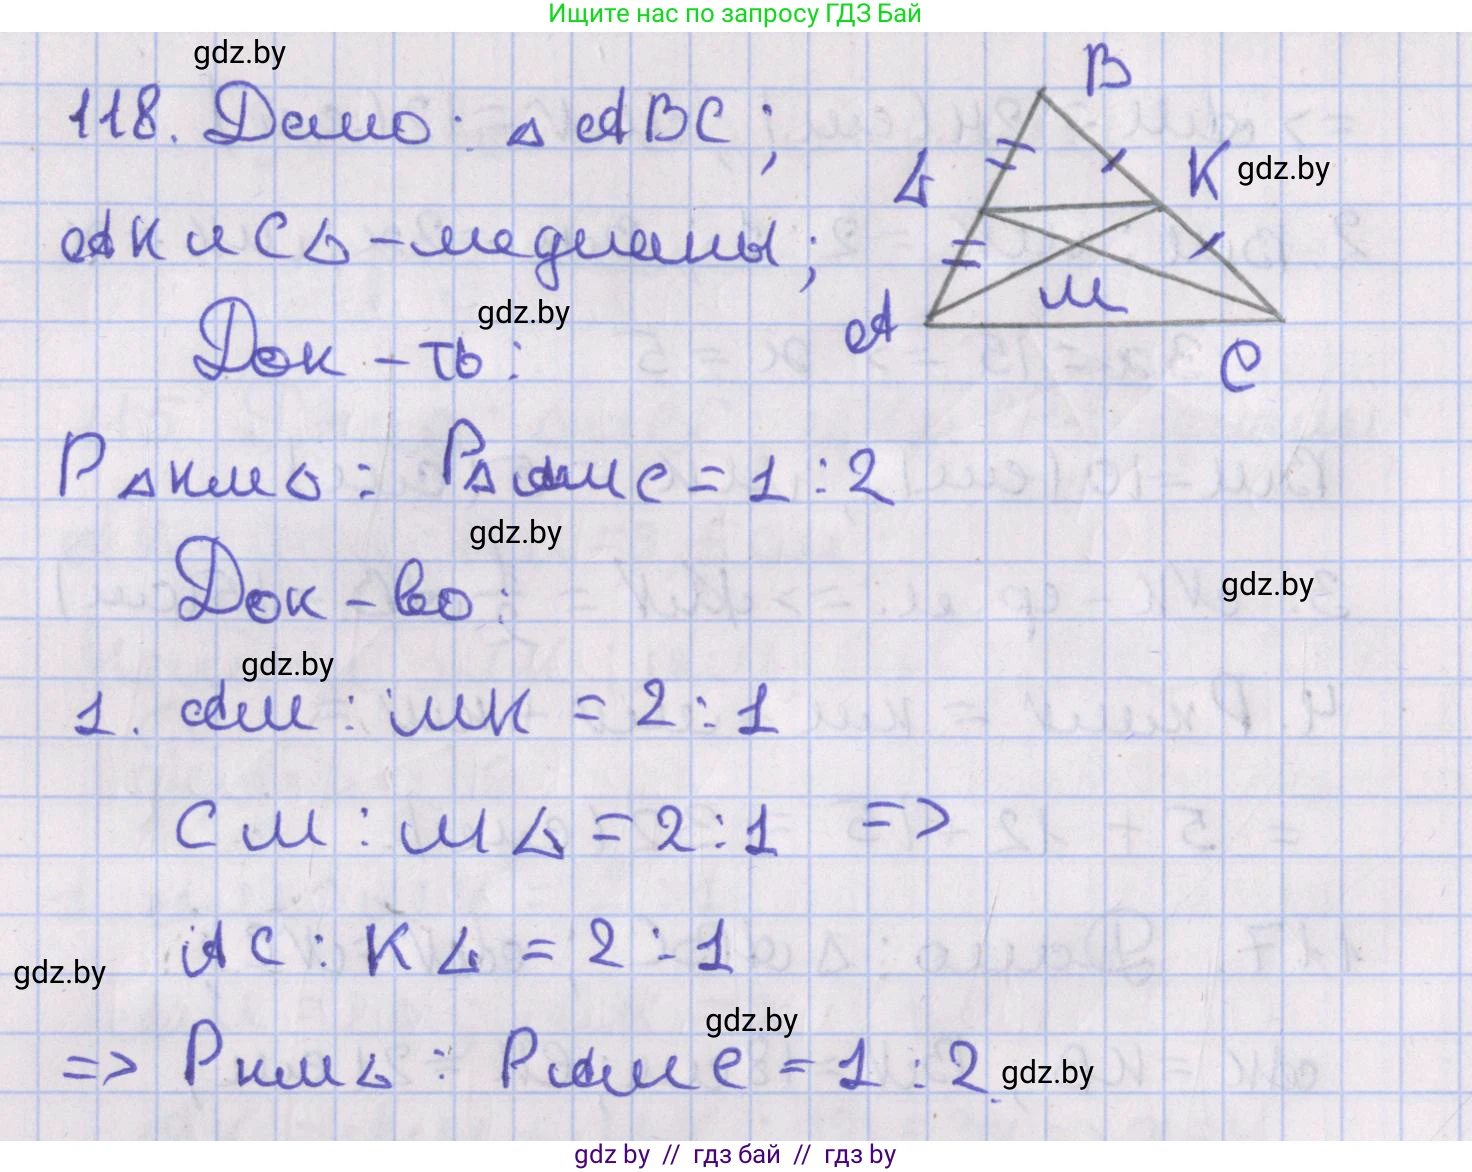 Ищите нас по запросу ГДЗ Бай
gdz.by
118. Дано: △ ABC;
B
L
K
gdz.by
AK и CL – медианы;
gdz.by
M
A
C
Док – ть:
P△KML : P△AMC = 1 : 2
gdz.by
Док – во:
gdz.by
gdz.by
1. AM : MK = 2 : 1
CM : ML = 2 : 1 =>
AC : KL = 2 : 1
gdz.by
gdz.by
=> PKML : PAMC = 1 : 2.
gdz.by
gdz.by // гдз бай // гдз by